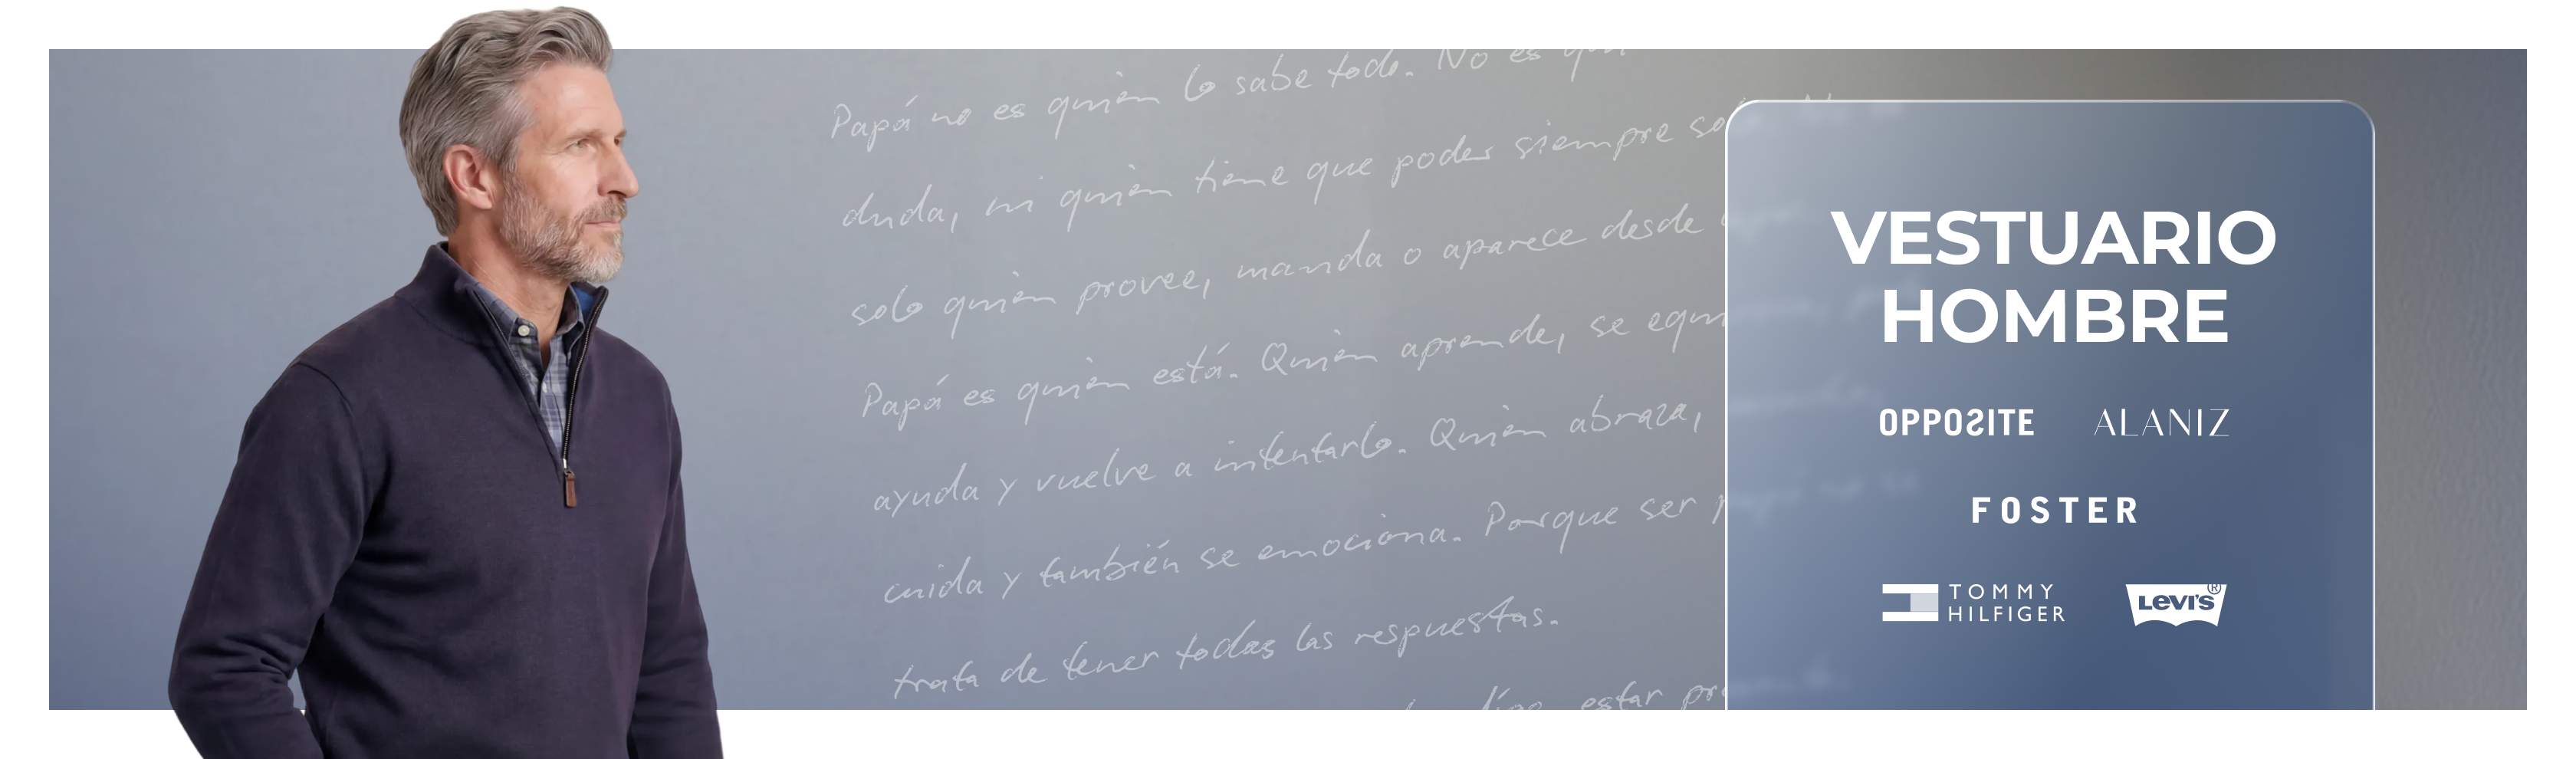 Papá no es quien lo sabe todo. No es que
duda, ni quien tiene que poder siempre so
solo quien provee, manda o aparece desde
Papá es quien está. Quien aprende, se equi
ayuda y vuelve a intentarlo. Quien abraza,
cuida y también se emociona. Porque ser p
trata de tener todas las respuestas.
estar pr
VESTUARIO
HOMBRE
OPPOSITE ALANIZ
FOSTER
TOMMY
HILFIGER
LEVI'S®